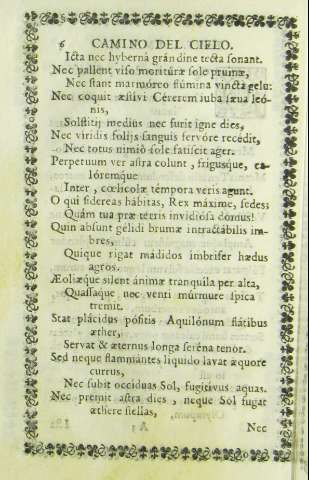 6 CAMINO DEL CIELO.
Icta nec hyberná grándine tecta sonant.
Nec pallent viso moritúræ sole pruinæ,
Nec stant marmóreo flúmina vincta gelu:
Nec coquit æstivi Cérerem iuba sæua leó-
nis,
Solstitij medius nec furit igne dies,
Nec viridis folijs sanguis fervóre recédit,
Nec totus nimió sole fatiscit ager.
Perpetuum ver astra colunt, frigusque, ca-
lóremque
Inter, cœlicolæ témpora veris agunt.
O qui sidereas hábitas, Rex máxime, sedes;
Quám tua præ terris invidiósa domus!
Quin absunt gelidi brumæ intractábilis im-
bres,
Quique rigat mádidos imbrifer hædus
agros.
Æoliæque silent ánimæ tranquila per alta,
Quassaque noc venti múrmure spica
tremit.
Stat plácidus pósitis Aquilónum flátibus
æther,
Servat & æternus longa seréna tenor.
Sed neque flammántes liquido lavat æquore
currus,
Nec subit occiduas Sol, fugitivus aquas.
Nec premit astra dies, neque Sol fugat
æthere stellas,
A 3 Nec